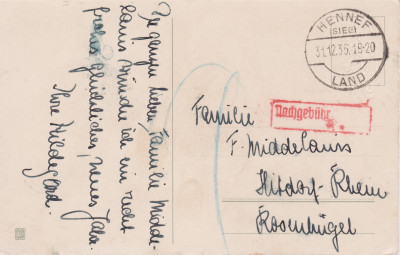 Der ganzen lieben Familie Midde-
lanis wünsche ich ein recht
frohes glückliches, neues Jahr.
Ihre Hildegard.
HENNEF
(SIEG)
31.12.35.18-20
LAND
Nachgebühr
Familie
F. Middelanis
Hitdorf-Rhein
Rosenhügel